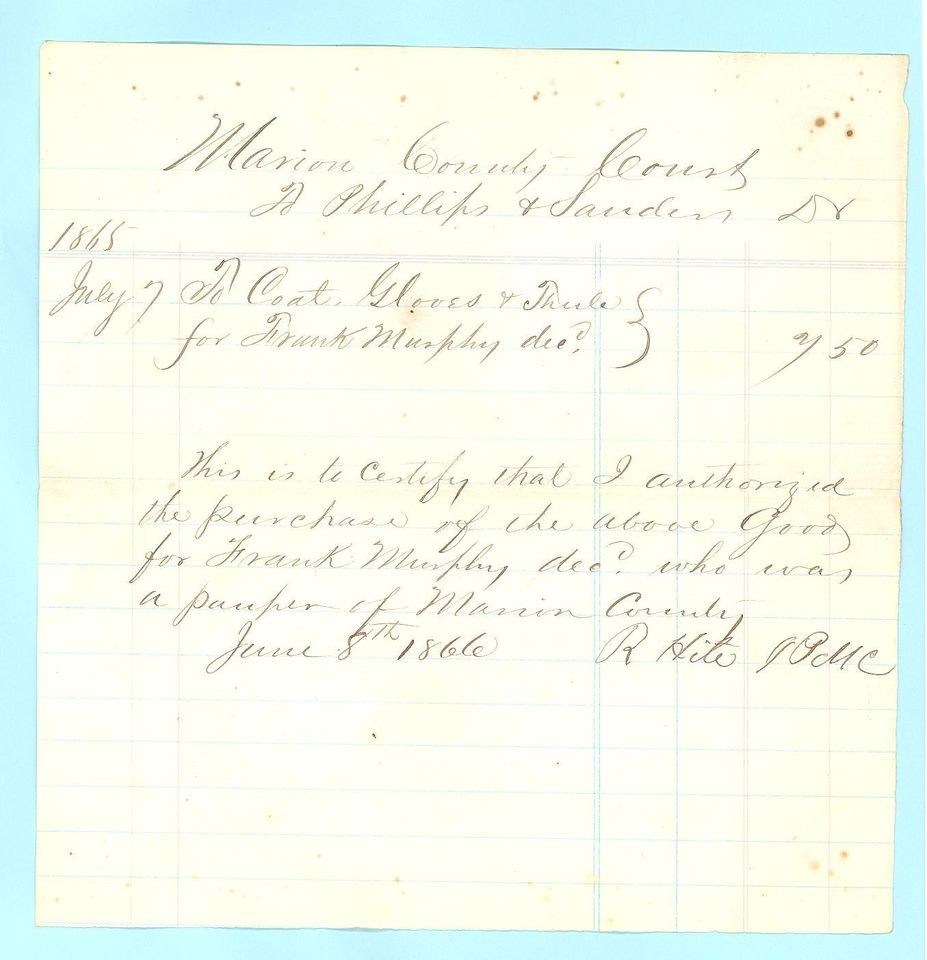 Marion County Court
To Phillips & Sanders Dr
1865
July 7 To Coat. Gloves &
for Frank Murphy decd. 7 50
This is to certify that I authorized
the purchase of the above Goods
for Frank Murphy decd. who was
a pauper of Marion County
June 8th 1866 R Hite JPMC